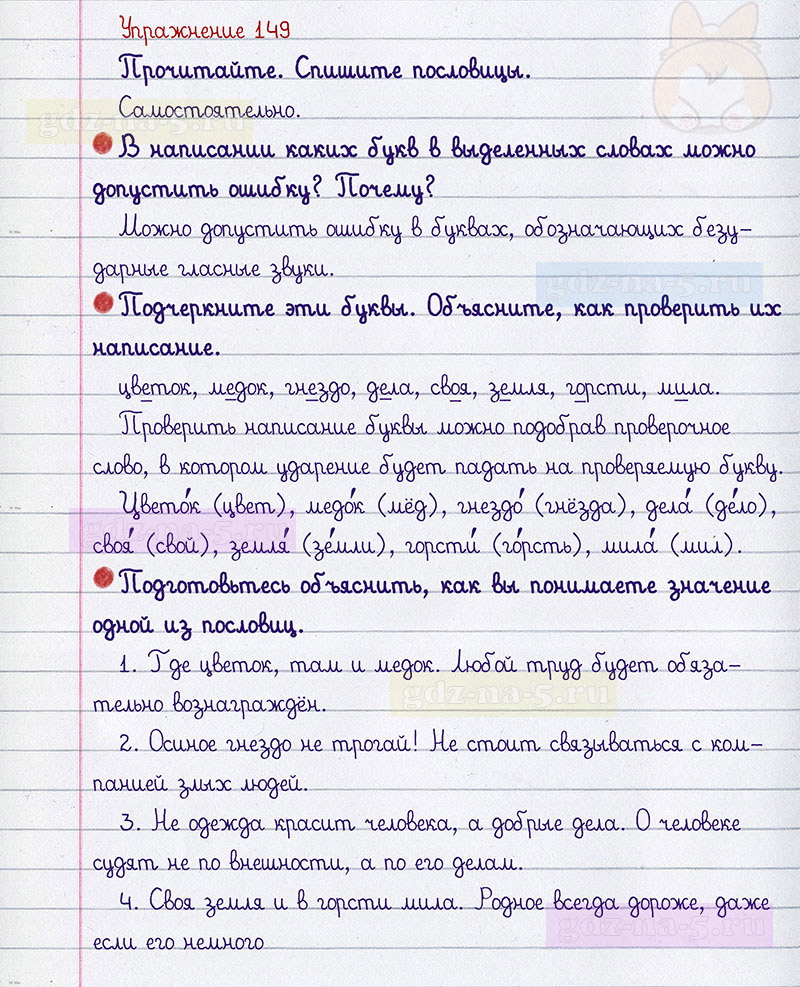 Упражнение 149
Прочитайте. Спишите пословицы.
Самостоятельно.
gdz-na-5.ru
В написании каких букв в выделенных словах можно
допустить ошибку? Почему?
Можно допустить ошибку в буквах, обозначающих безу-
дарные гласные звуки.
gdz-na-5.ru
Подчеркните эти буквы. Объясните, как проверить их
написание.
цветок, медок, гнездо, дела, своя, земля, горсти, мила.
Проверить написание буквы можно подобрав проверочное
слово, в котором ударение будет падать на проверяемую букву.
Цвето́к (цвет), медо́к (мёд), гнездо́ (гнёзда), дела́ (де́ло),
gdz-na-5.ru
своя́ (свой), земля́ (зе́мли), горсти́ (го́рсть), мила́ (мил).
Подготовьтесь объяснить, как вы понимаете значение
одной из пословиц.
1. Где цветок, там и медок. Любой труд будет обяза-
тельно вознаграждён.
gdz-na-5.ru
2. Осиное гнездо не трогай! Не стоит связываться с ком-
панией злых людей.
3. Не одежда красит человека, а добрые дела. О человеке
судят не по внешности, а по его делам.
4. Своя земля и в горсти мила. Родное всегда дороже, даже
gdz-na-5.ru
если его немного